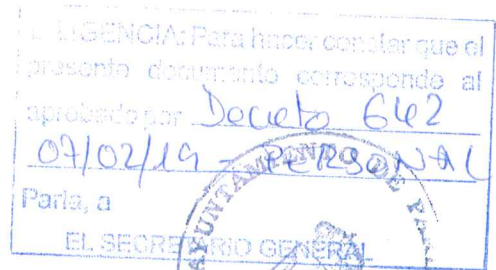 DILIGENCIA: Para hacer constar que el
presente documento corresponde al
aprobado por Decreto 642
07/02/19 - PERSONAL
Parla, a
EL SECRETARIO GENERAL
AYUNTAMIENTO DE